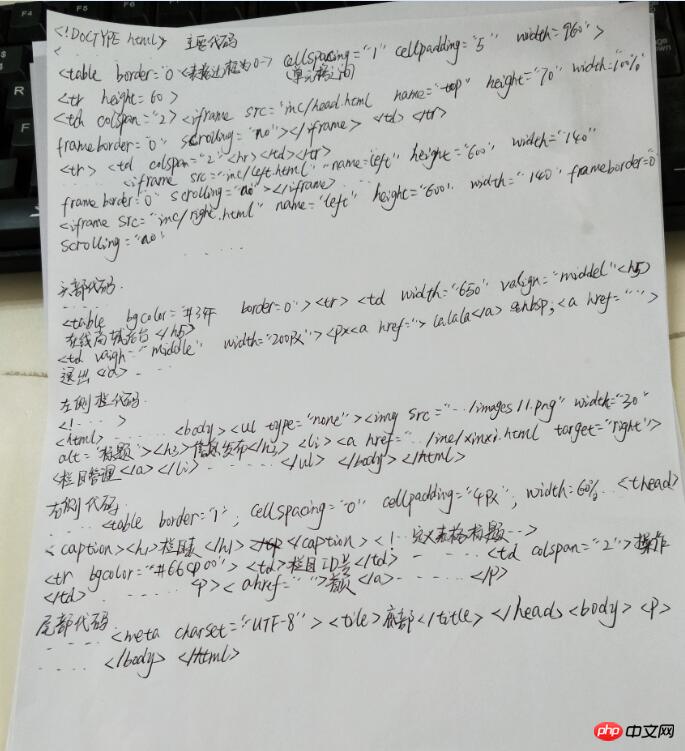 <!DOCTYPE html> 主要代码
<table border="0 <表格边框为0--> cellspacing="1" cellpadding="5" width=960">
(单元格之间)
<tr height=60>
<td colspan="2><iframe src="inc/head.html name="top" height="70" width=100%
frameborder="0" scrolling="no"></iframe> </td> </tr>
<tr> <td colspan="2"<hr><td><tr>
<iframe src="inc/left.html" name=left" height="600" width="140"
frameborder="0" scrolling="no"></iframe>
<iframe src="inc/right.html" name="left" height="600" width="140" frameborder="0
scrolling="no"
头部代码.
<table bgcolor="#34F border=0"><tr> <td width="650" valign="middel"<h5>
在线商城后台 </h5>
<td vaigh="middle" width="200px"><px<a href=""> lalala</a> &nbsp; <a href=" ">
退出 </a>
左侧栏代码.
<! >
<html> <body><ul type="none"><img src="../images11.png" width="30"
alt="标题"><h3>信息发布</h3> <li><a href="../inc/xinxi.html target="right">
<栏目管理</a></li> </ul> </body></html>
右侧代码.
<table border="1"; cellspacing="0" cellpadding="4px"; width=60% <thead>
<caption><h1>栏目表</h1> </caption> <! 定义表格标题-->
<tr bgcolor="#66cp00"> <td>栏目ID号</td> <td colspan="2">操作
</td> <p><ahref=" "> </a> </p>
尾部代码.
<meta charset="UTF-8"> <tile>底部</title> </head><body> <p>
</body> </html>
php 中文网
F4
F5
F6
F7
F8